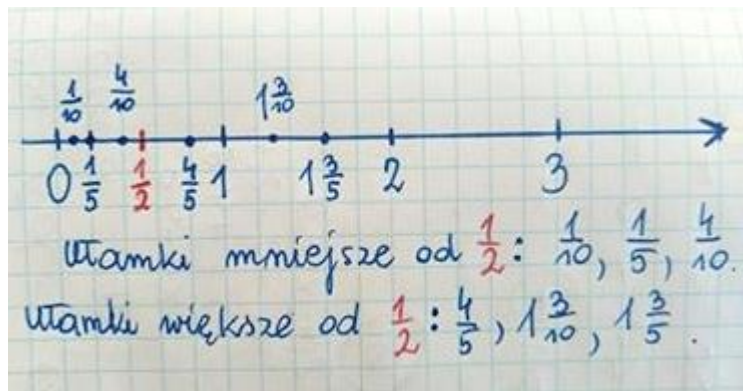 1/10 4/10 1 3/10
0 1/5 1/2 4/5 1 1 3/5 2 3
Ułamki mniejsze od 1/2: 1/10, 1/5, 4/10.
Ułamki większe od 1/2: 4/5, 1 3/10, 1 3/5.